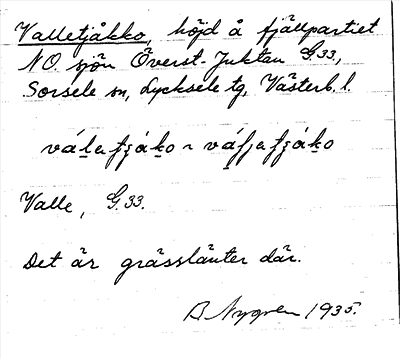 Valletjåkko, höjd å fjällpartiet
NO. sjön Överst-Juktan G.33,
Sorsele sn, Lycksele tg, Västerb. l.
Valle, G.33.
Det är grässlänter där.
B Nygren 1935.